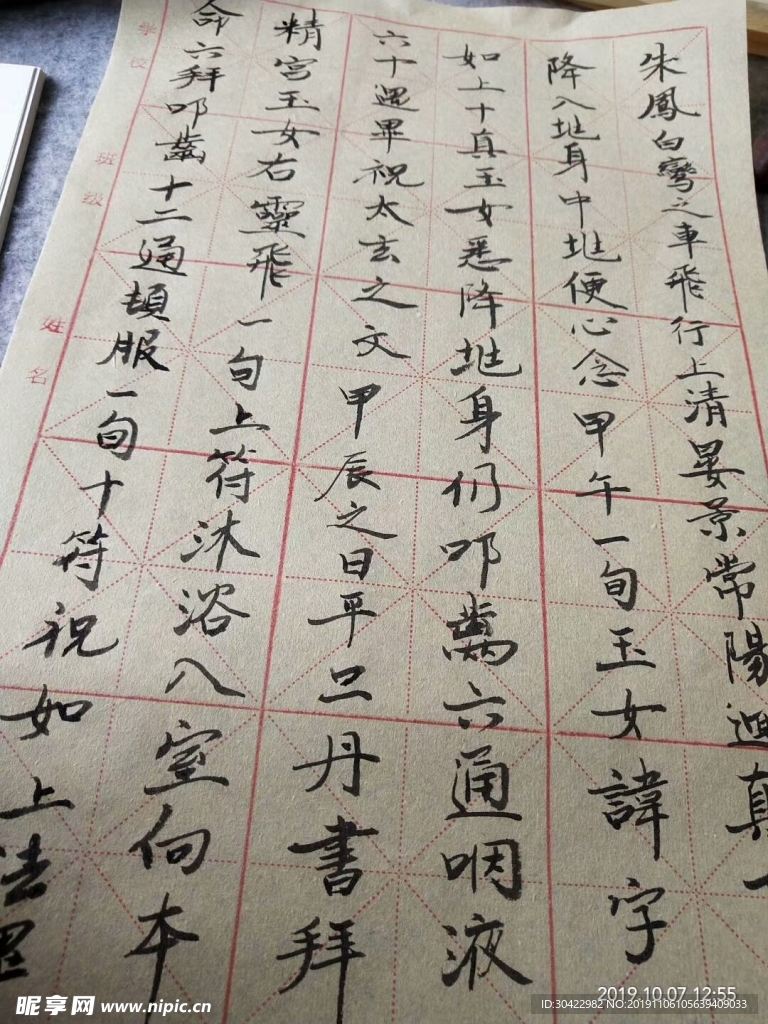 朱鳳白鸞之車飛行上清晏景常陽迴真一
降入地身中地便心念甲午一旬玉女諱字
如上十真玉女悉降地身仍叩齒六通咽液
六十過畢祝太玄之文甲辰之日平旦丹書拜
精宮玉女右靈飛一旬上符沐浴入室向本
命六拜叩齒十二通頓服一旬十符祝如上法畢
学校
班级
姓名
2019.10.07 12:55
昵享网 www.nipic.cn
ID:30422982 NO:20191106105639409033